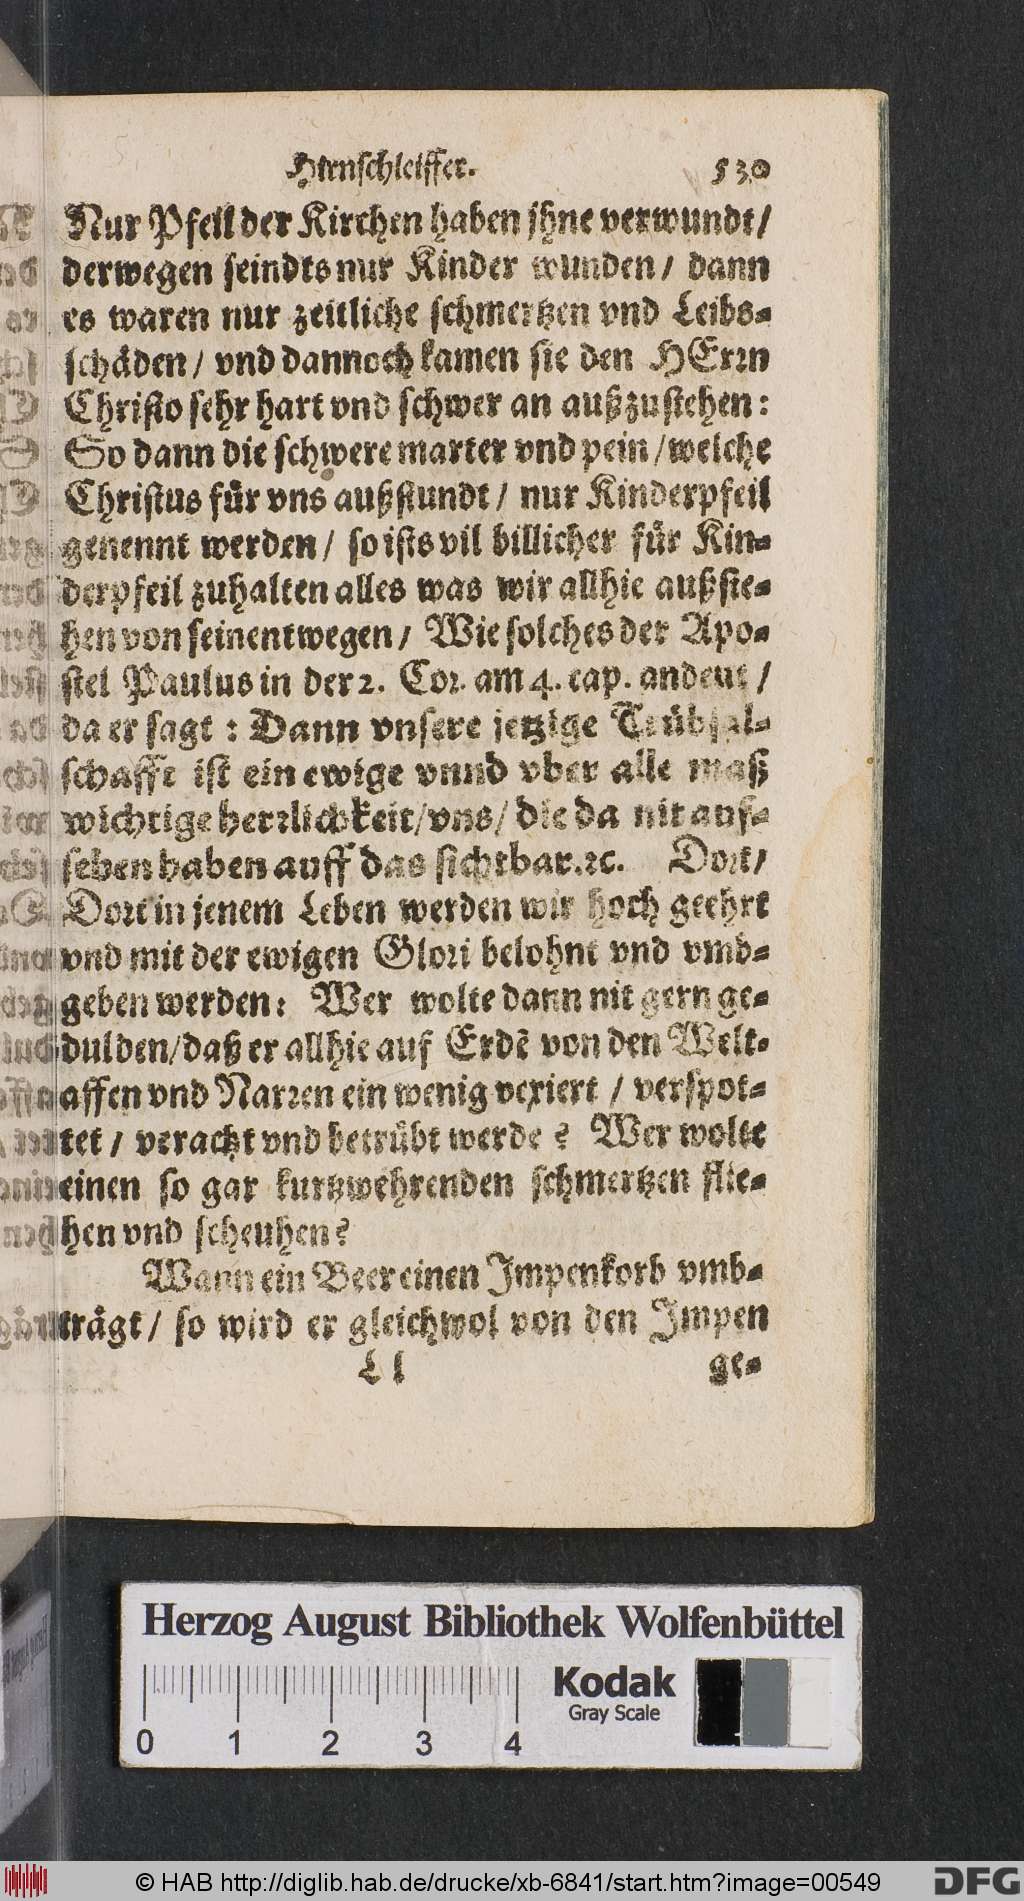 Hirnschleiffer. 530
Nur Pfeil der Kirchen haben jhne verwundt/
derwegen seindts nur Kinder wunden/ dann
es waren nur zeitliche schmertzen vnd Leibs-
schäden/ vnd dannoch kamen sie den HErrn
Christo sehr hart vnd schwer an außzustehen:
So dann die schwere marter vnd pein/welche
Christus für vns außstundt/ nur Kinderpfeil
genennt werden/ so ists vil billicher für Kin-
derpfeil zuhalten alles was wir allhie außste-
hen von seinentwegen/ Wie solches der Apo-
stel Paulus in der 2. Cor. am 4. cap. andeut/
da er sagt: Dann vnsere jetzige Trübsal-
schafft ist ein ewige vnnd vber alle maß
wichtige herrlichkeit/vns/ die da nit auf-
sehen haben auff das sichtbar.ꝛc. Dort/
Dort in jenem Leben werden wir hoch geehrt
vnd mit der ewigen Glori belohnt vnd vmb-
geben werden: Wer wolte dann nit gern ge-
dulden/daß er allhie auf Erdẽ von den Welt-
affen vnd Narren ein wenig vexiert/ verspot-
tet/ verachtzt vnd betrübt werde? Wer wolte
einen so gar kurtzwehrenden schmertzen flie-
hen vnd scheuhen?
Wann ein Beer einen Impenkorb vmb-
trägt/ so wird er gleichwol von den Impen
Ll ge-
Herzog August Bibliothek Wolfenbüttel
Kodak
Gray Scale
0 1 2 3 4
© HAB http://diglib.hab.de/drucke/xb-6841/start.htm?image=00549
DFG